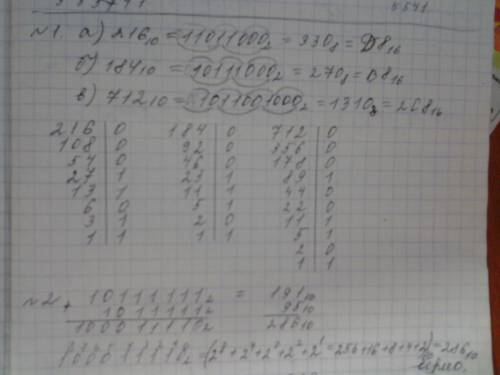 5541
№1. а) 216₁₀ = 11011000₂ = 330₈ = D8₁₆
б) 184₁₀ = 10111000₂ = 270₈ = B8₁₆
в) 712₁₀ = 1011001000₂ = 1310₈ = 2C8₁₆
216 0 184 0 712 0
108 0 92 0 356 0
54 0 46 0 178 0
27 1 23 1 89 1
13 1 11 1 44 0
6 0 5 1 22 0
3 1 2 0 11 1
1 1 1 1 5 1
2 0
1 1
№2 + 10111111₂ = 191₁₀
1011111₂ 95₁₀
100011110₂ 286₁₀
100011110₂ = (2⁸+2⁴+2³+2²+2¹ = 256+16+8+4+2)₁₀ = 286₁₀
верно.